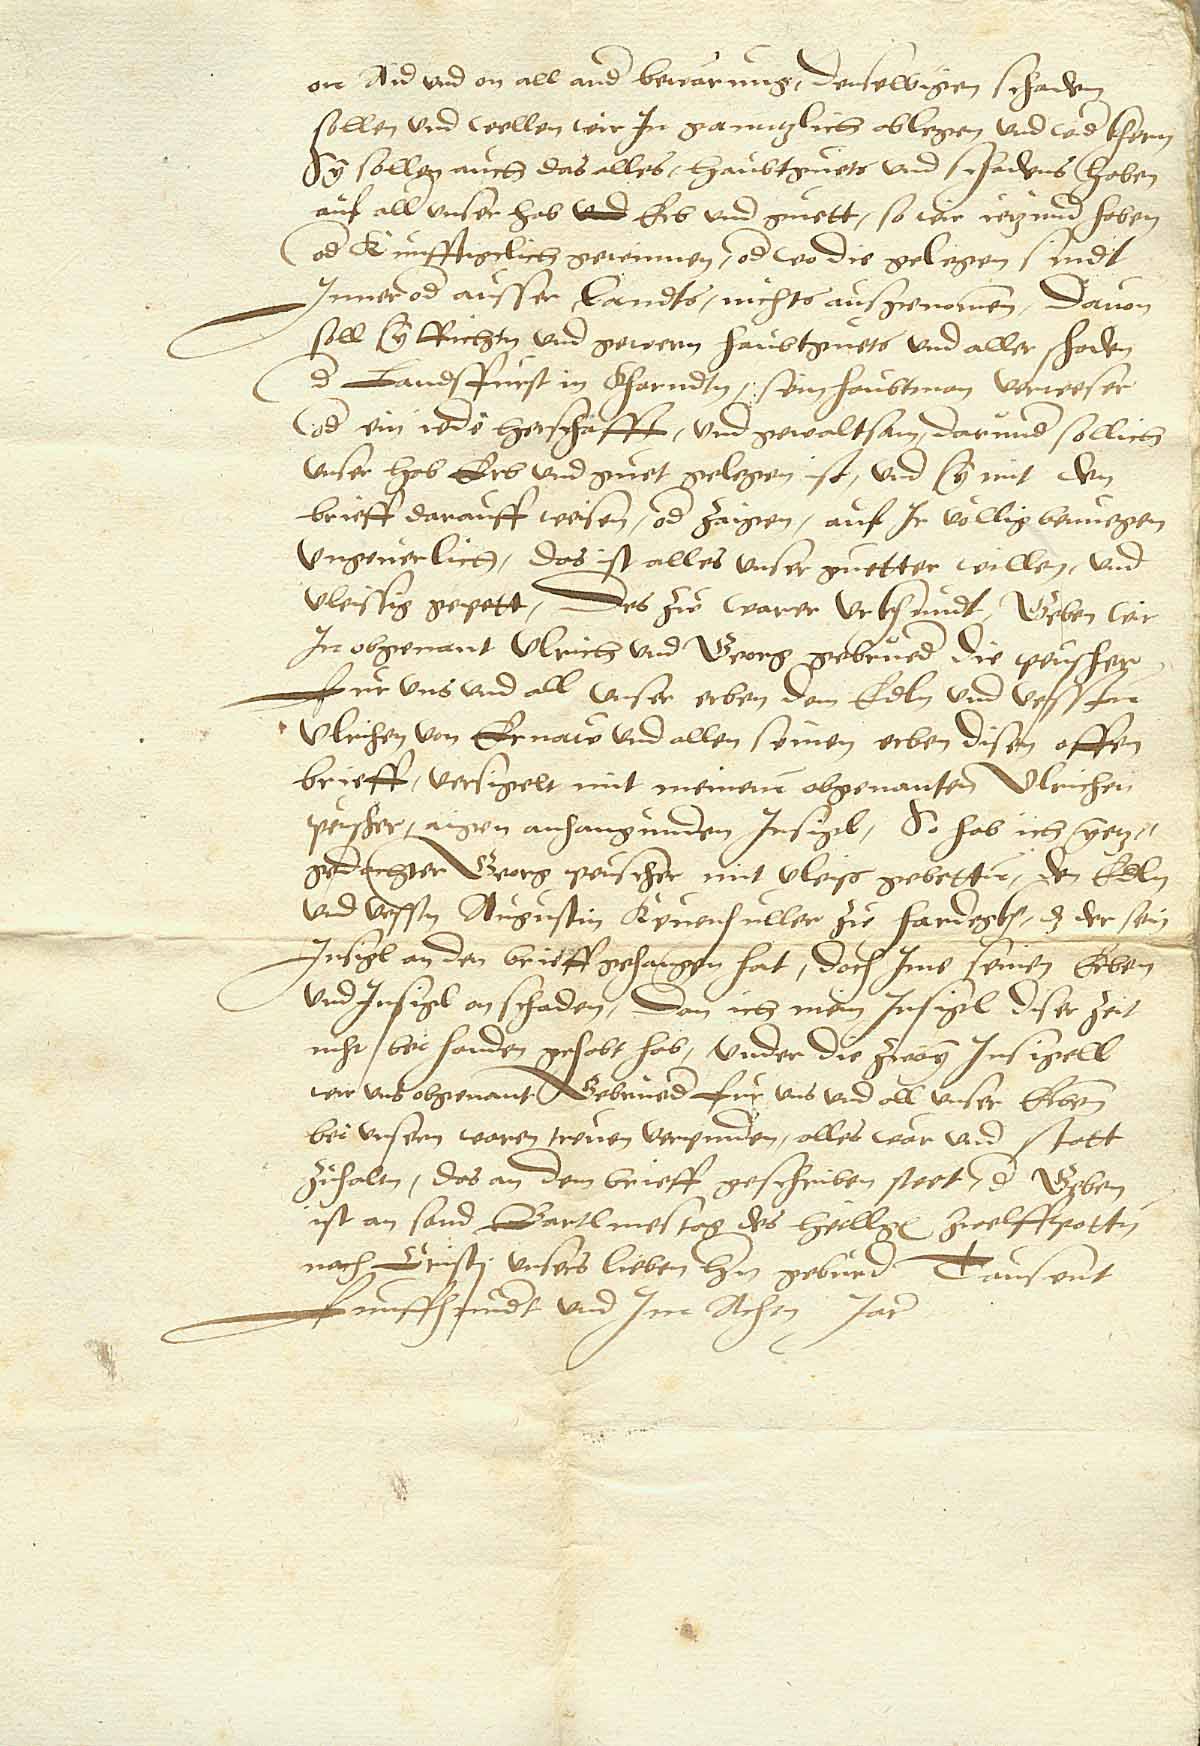 on Aid vnd on all and bewärung, denselbigen schaden
sollen vnd wellen wir In ganntzlich ablegen vnd wid khern
Sy sollen auch das alles, haubtguets vnd schadens haben
auf all vnser hab vnd Erb vnd guett, so wir ietzund haben
od Kunfftigclich gewinnen, od wo die gelegen sindt
Inner od ausser Landts, nichts ausgenomen, dauon
soll sy Richtn vnd gewern haubtguets vnd aller schaden
d Landsfurst in Kharndtn, sein haubtman verweser
od ein iede herschafft, vnd gewaltsam, darund sollich
vnser hab Erb vnd guet gelegen ist, vnd sy mit den
brieff darauff weisen, od zaigen, auf Ir völlig benuegen
vngeuerlich, das ist alles vnser guetter willen, vnd
vleissig gepett, Des zw warer vrkhundt, Geben wir
In obgenant Vlrich vnd Georg gebrued die peuscher
fur vns vnd all vnser erben dem Edln vnd vessten
Vlrichen von Ernaw vnd allen seinen erben disen offen
brieff, versigelt mit meinem obgenanten Vlrichen
peuscher, aigen anhangunden Insigl, So hab ich yetz„
gedachter Georg peuscher mit vleiss gebetten, den Edln
vnd vesstn Augustin Keuenhuller zw hardegkh, dz der sein
Insigl an den brieff gehangen hat, doch Ime seinen Erben
vnd Insigl on schaden, Dan ich mein Insigl diser Zeit
nicht bei handen gehabt hab, vnder die zway Insigell
wir vns obgenant Gebrued fur vns vnd all vnser Erben
bei vnsern waren treuen verpunden, alles war vnd statt
zuhaltn, das an dem brieff geschriben steet, d Geben
ist an sand Bartlmestag des heillgn zwelffpottn
nach Cristj vnsers lieben hern geburd Tausent
funffhundt vnd Im Achen Jar